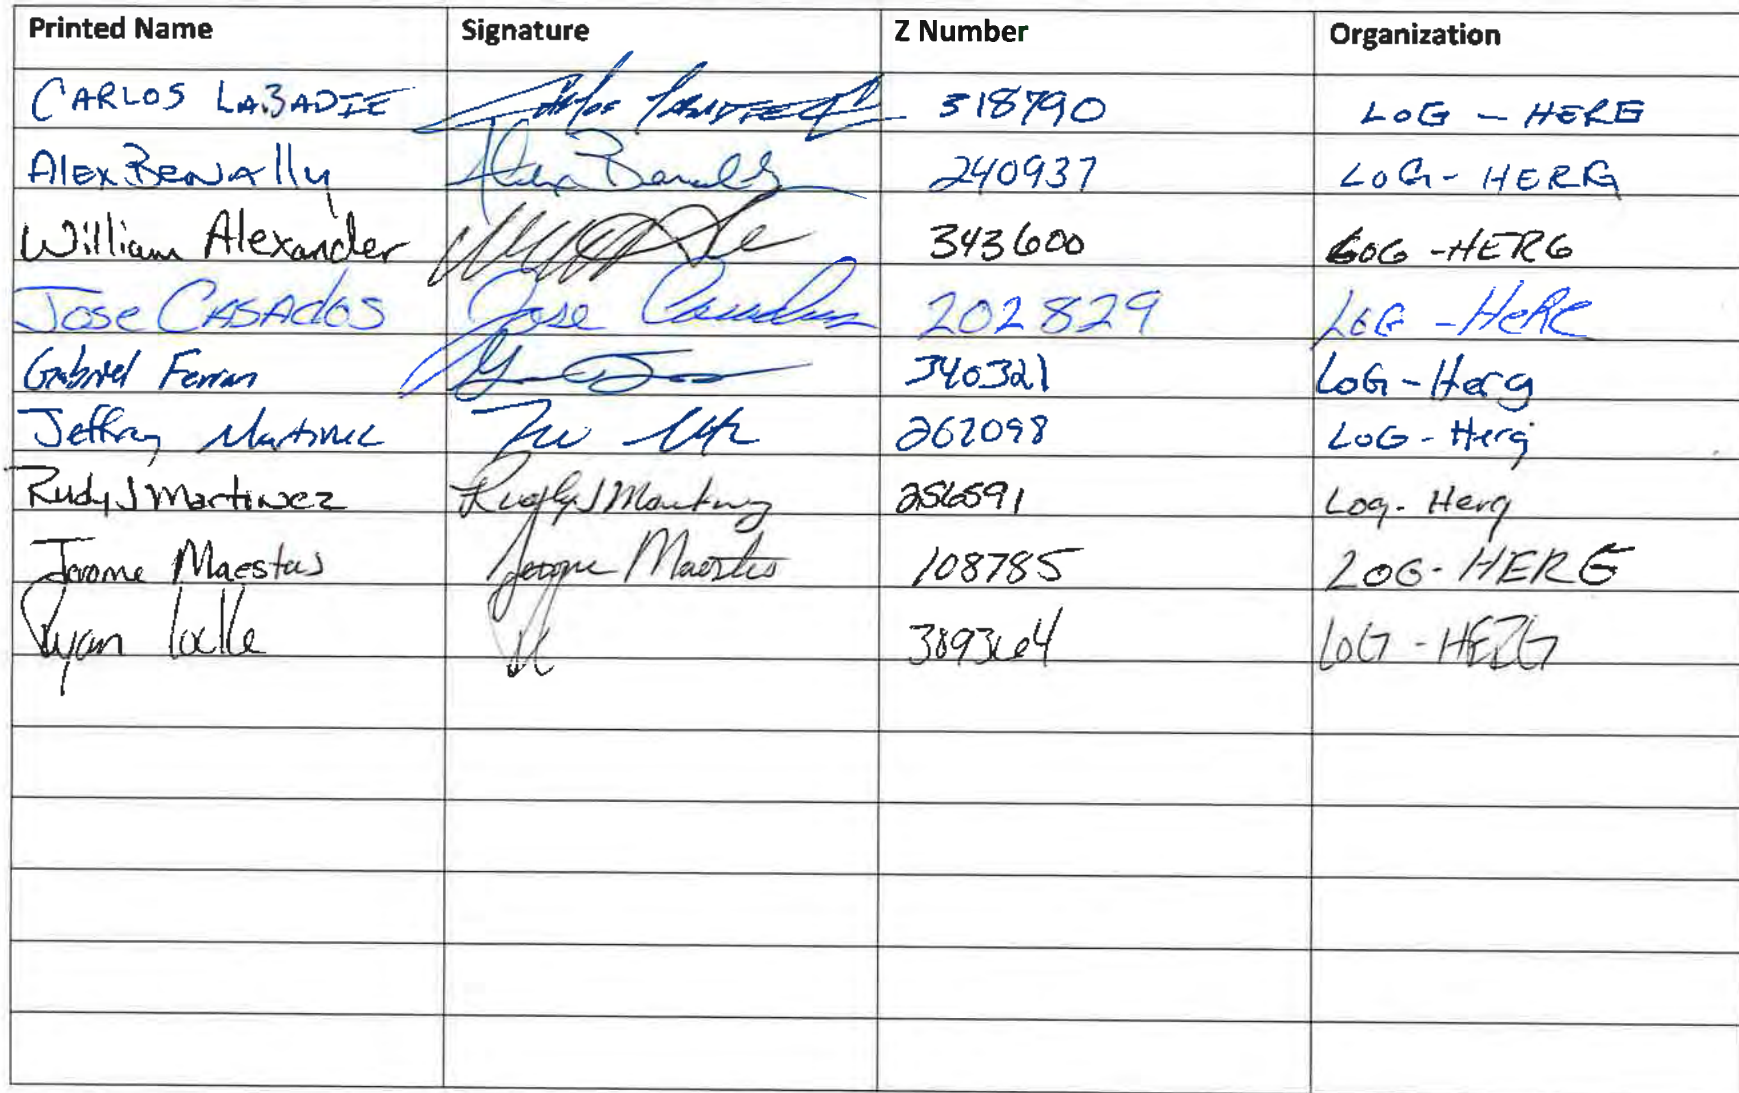 Printed Name Signature Z Number Organization
CARLOS LABADIE Carlos Labadie 318790 LOG - HERG
Alex Benally Alex Benally 240937 LOG - HERG
William Alexander 343600 LOG - HERG
Jose CASAdos Jose Casados 202829 LOG - HeRG
Gabriel Ferran 340321 LOG - Herg
Jeffrey Martinez 262098 LOG - Herg
Rudy J Martinez Rudy J Martinez 256591 Log - Herg
Jerome Maestas Jerome Maestas 108785 LOG - HERG
Ryan 389364 LOG - HERG